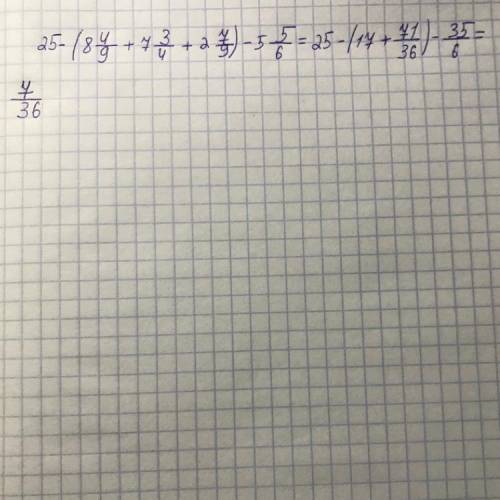 25-(8 4/9 + 7 3/4 + 2 7/9) - 5 5/6 = 25 - (17 + 71/36) - 35/6 =
7/36